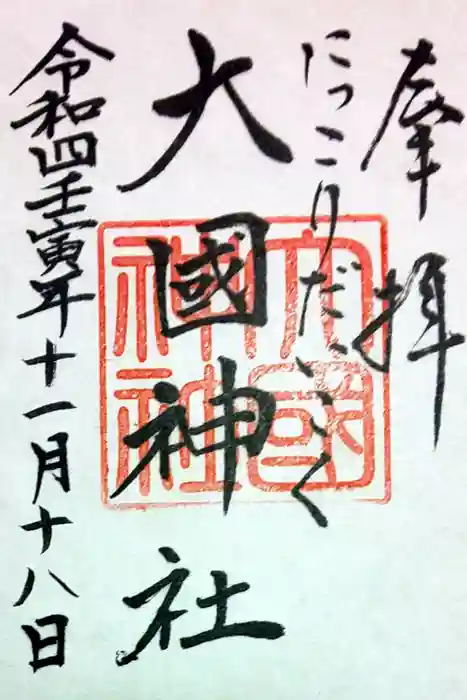 奉拝
にっこりだいこく
大國神社
令和四壬寅年十一月十八日
大國
神社